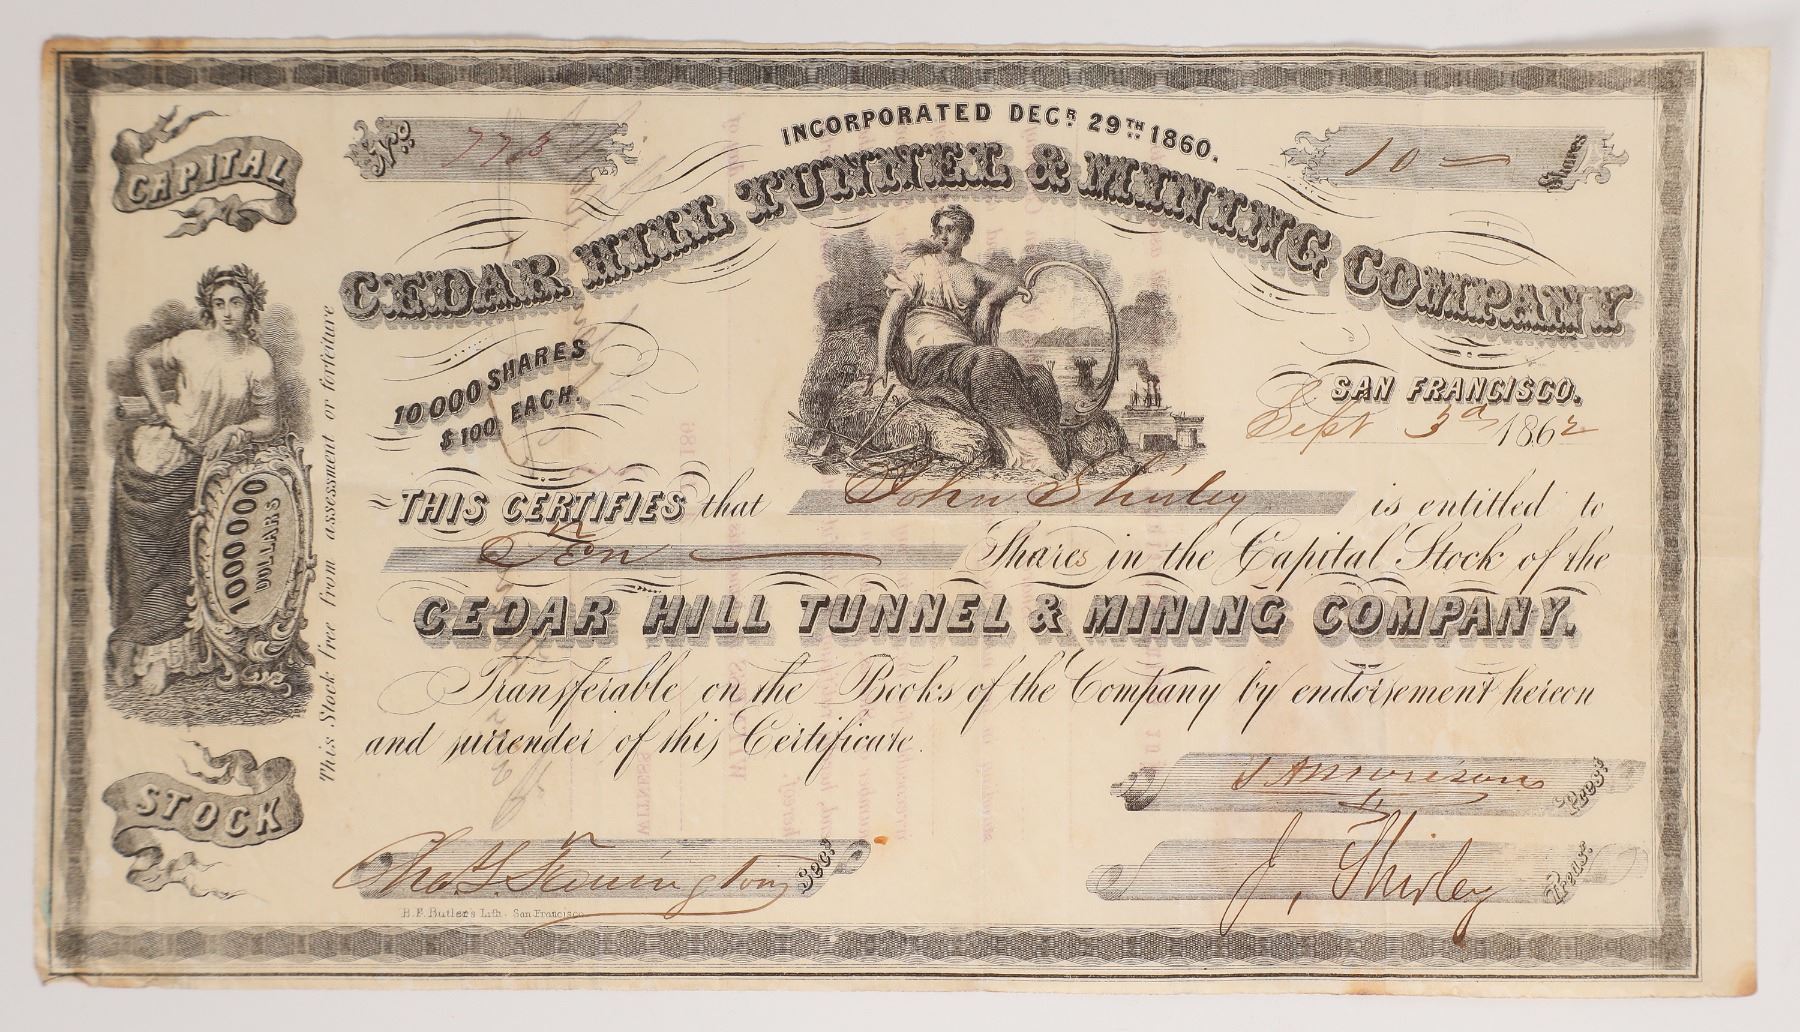 INCORPORATED DECR 29TH 1860.
No 773
10 — Shares
CEDAR HILL TUNNEL & MINING COMPANY
CAPITAL
10000 SHARES
$100 EACH.
SAN FRANCISCO.
Sept 3d 1862
THIS CERTIFIES that John Shirley is entitled to
Ten — Shares in the Capital Stock of the
CEDAR HILL TUNNEL & MINING COMPANY.
Transferable on the Books of the Company by endorsement hereon
and surrender of this Certificate.
1000000
DOLLARS
This Stock free from assessment or forfeiture
STOCK
Morison Pres:
Secy:
J. Shirley Treas:
B.F. Butler's Lith. San Francisco